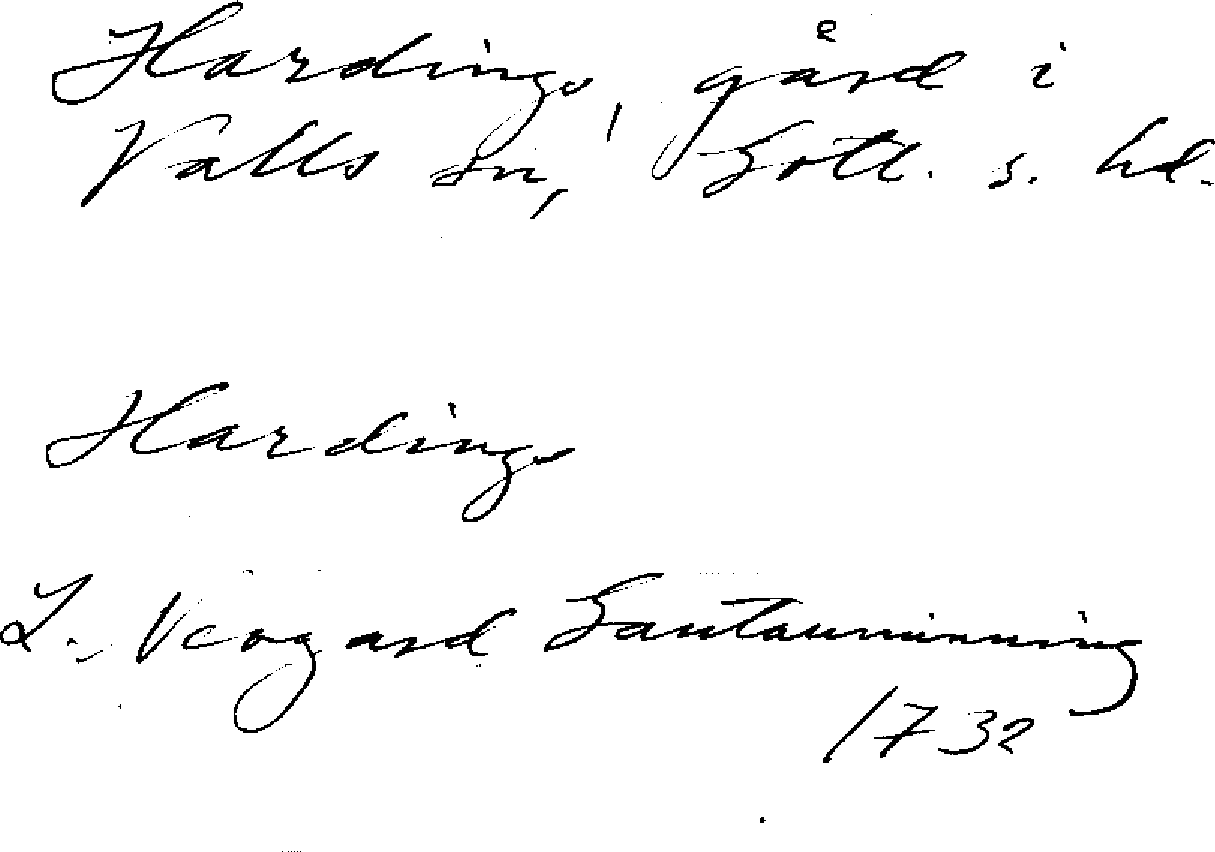 Hardings, gård i
Valls sn, Gotl. s. hd.
Hardings
L. Neogard Gautauminning
1732